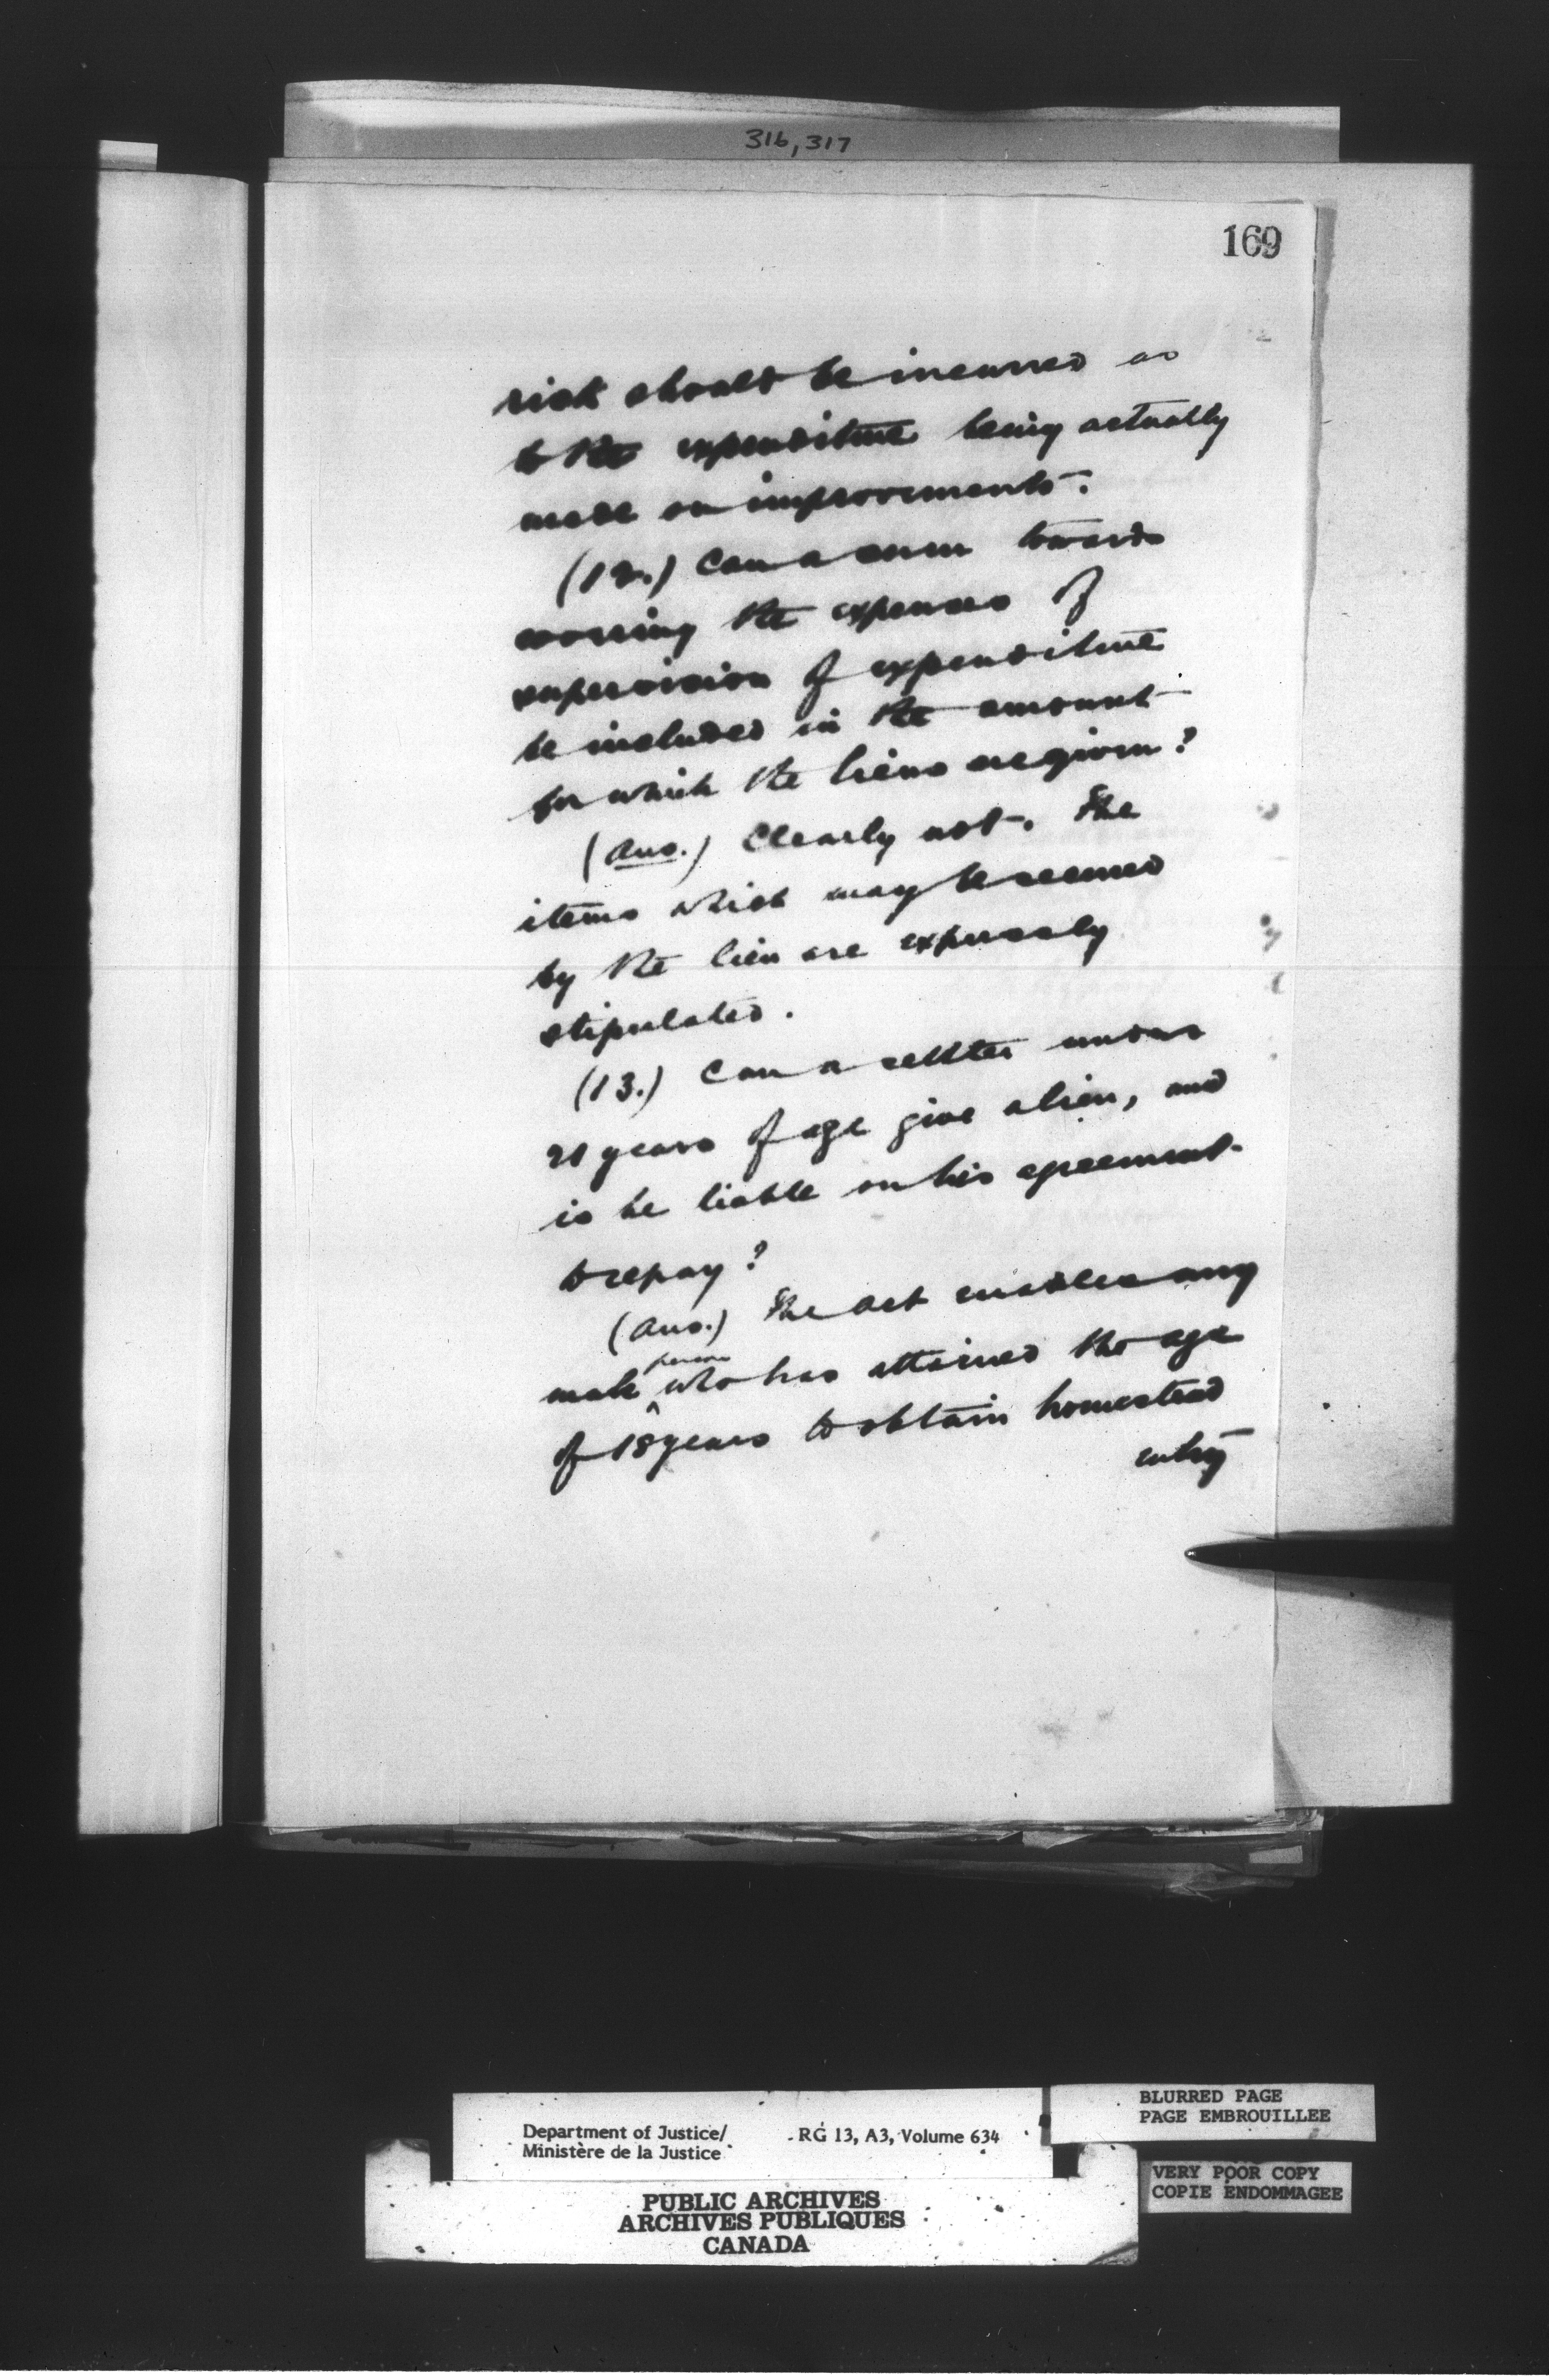 316, 317
169
risk should be incurred as
to the expenditure being actually
made on improvements.
(12.) Can a sum towards
covering the expenses of
supervision of expenditure
be included in the amount
for which the liens are given?
(Ans.) Clearly not. The
items which may be secured
by the lien are expressly
stipulated.
(13.) Can a settler under
21 years of age give a lien, and
is he liable on his agreement
to repay?
(Ans.) The Act enables any
person
male ^ who has attained the age
of 18 years to obtain homestead
entry
BLURRED PAGE
PAGE EMBROUILLEE
Department of Justice/ RG 13, A3, Volume 634
Ministère de la Justice
VERY POOR COPY
COPIE ENDOMMAGEE
PUBLIC ARCHIVES
ARCHIVES PUBLIQUES
CANADA